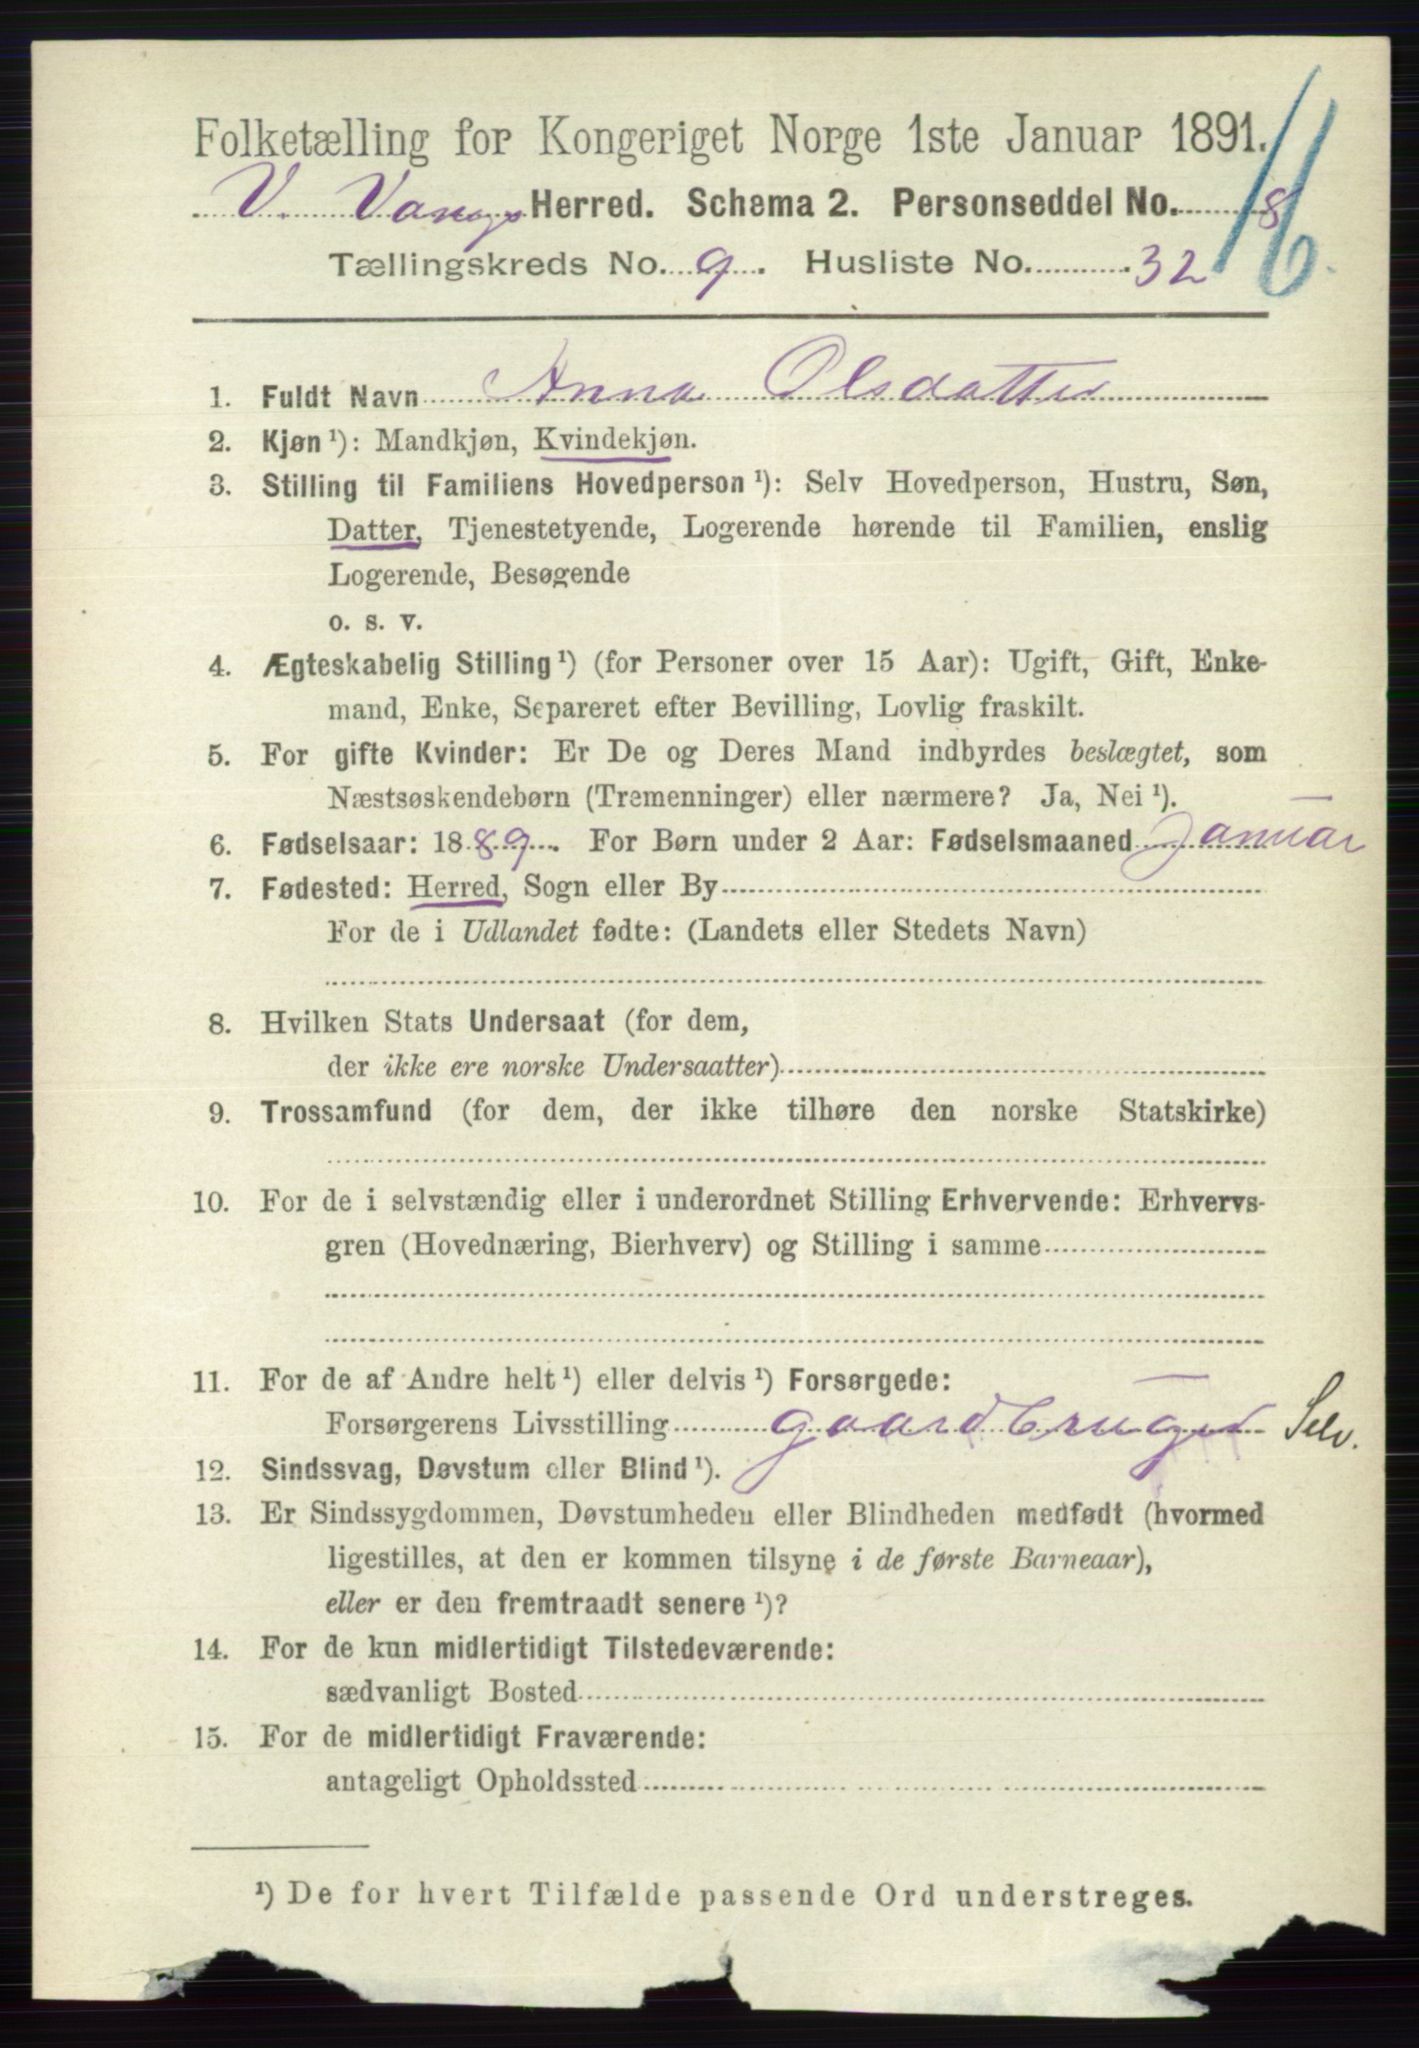 Folketælling for Kongeriget Norge 1ste Januar 1891.
16
V. Vangs Herred. Schema 2. Personseddel No. 8
Tællingskreds No. 9. Husliste No. 32
1. Fuldt Navn Anna Olsdatter
2. Kjøn ¹): Mandkjøn, Kvindekjøn.
3. Stilling til Familiens Hovedperson ¹): Selv Hovedperson, Hustru, Søn,
Datter, Tjenestetyende, Logerende hørende til Familien, enslig
Logerende, Besøgende
o. s. v.
4. Ægteskabelig Stilling ¹) (for Personer over 15 Aar): Ugift, Gift, Enke-
mand, Enke, Separeret efter Bevilling, Lovlig fraskilt.
5. For gifte Kvinder: Er De og Deres Mand indbyrdes beslægtet, som
Næstsøskendebørn (Tremenninger) eller nærmere? Ja, Nei ¹).
6. Fødselsaar: 1889. For Børn under 2 Aar: Fødselsmaaned Januar
7. Fødested: Herred, Sogn eller By
For de i Udlandet fødte: (Landets eller Stedets Navn)
8. Hvilken Stats Undersaat (for dem,
der ikke ere norske Undersaatter)
9. Trossamfund (for dem, der ikke tilhøre den norske Statskirke)
10. For de i selvstændig eller i underordnet Stilling Erhvervende: Erhvervs-
gren (Hovednæring, Bierhverv) og Stilling i samme
11. For de af Andre helt ¹) eller delvis ¹) Forsørgede:
Forsørgerens Livsstilling gaardbruger Selv.
12. Sindssvag, Døvstum eller Blind ¹).
13. Er Sindssygdommen, Døvstumheden eller Blindheden medfødt (hvormed
ligestilles, at den er kommen tilsyne i de første Barneaar),
eller er den fremtraadt senere ¹)?
14. For de kun midlertidigt Tilstedeværende:
sædvanligt Bosted
15. For de midlertidigt Fraværende:
antageligt Opholdssted
¹) De for hvert Tilfælde passende Ord understreges.